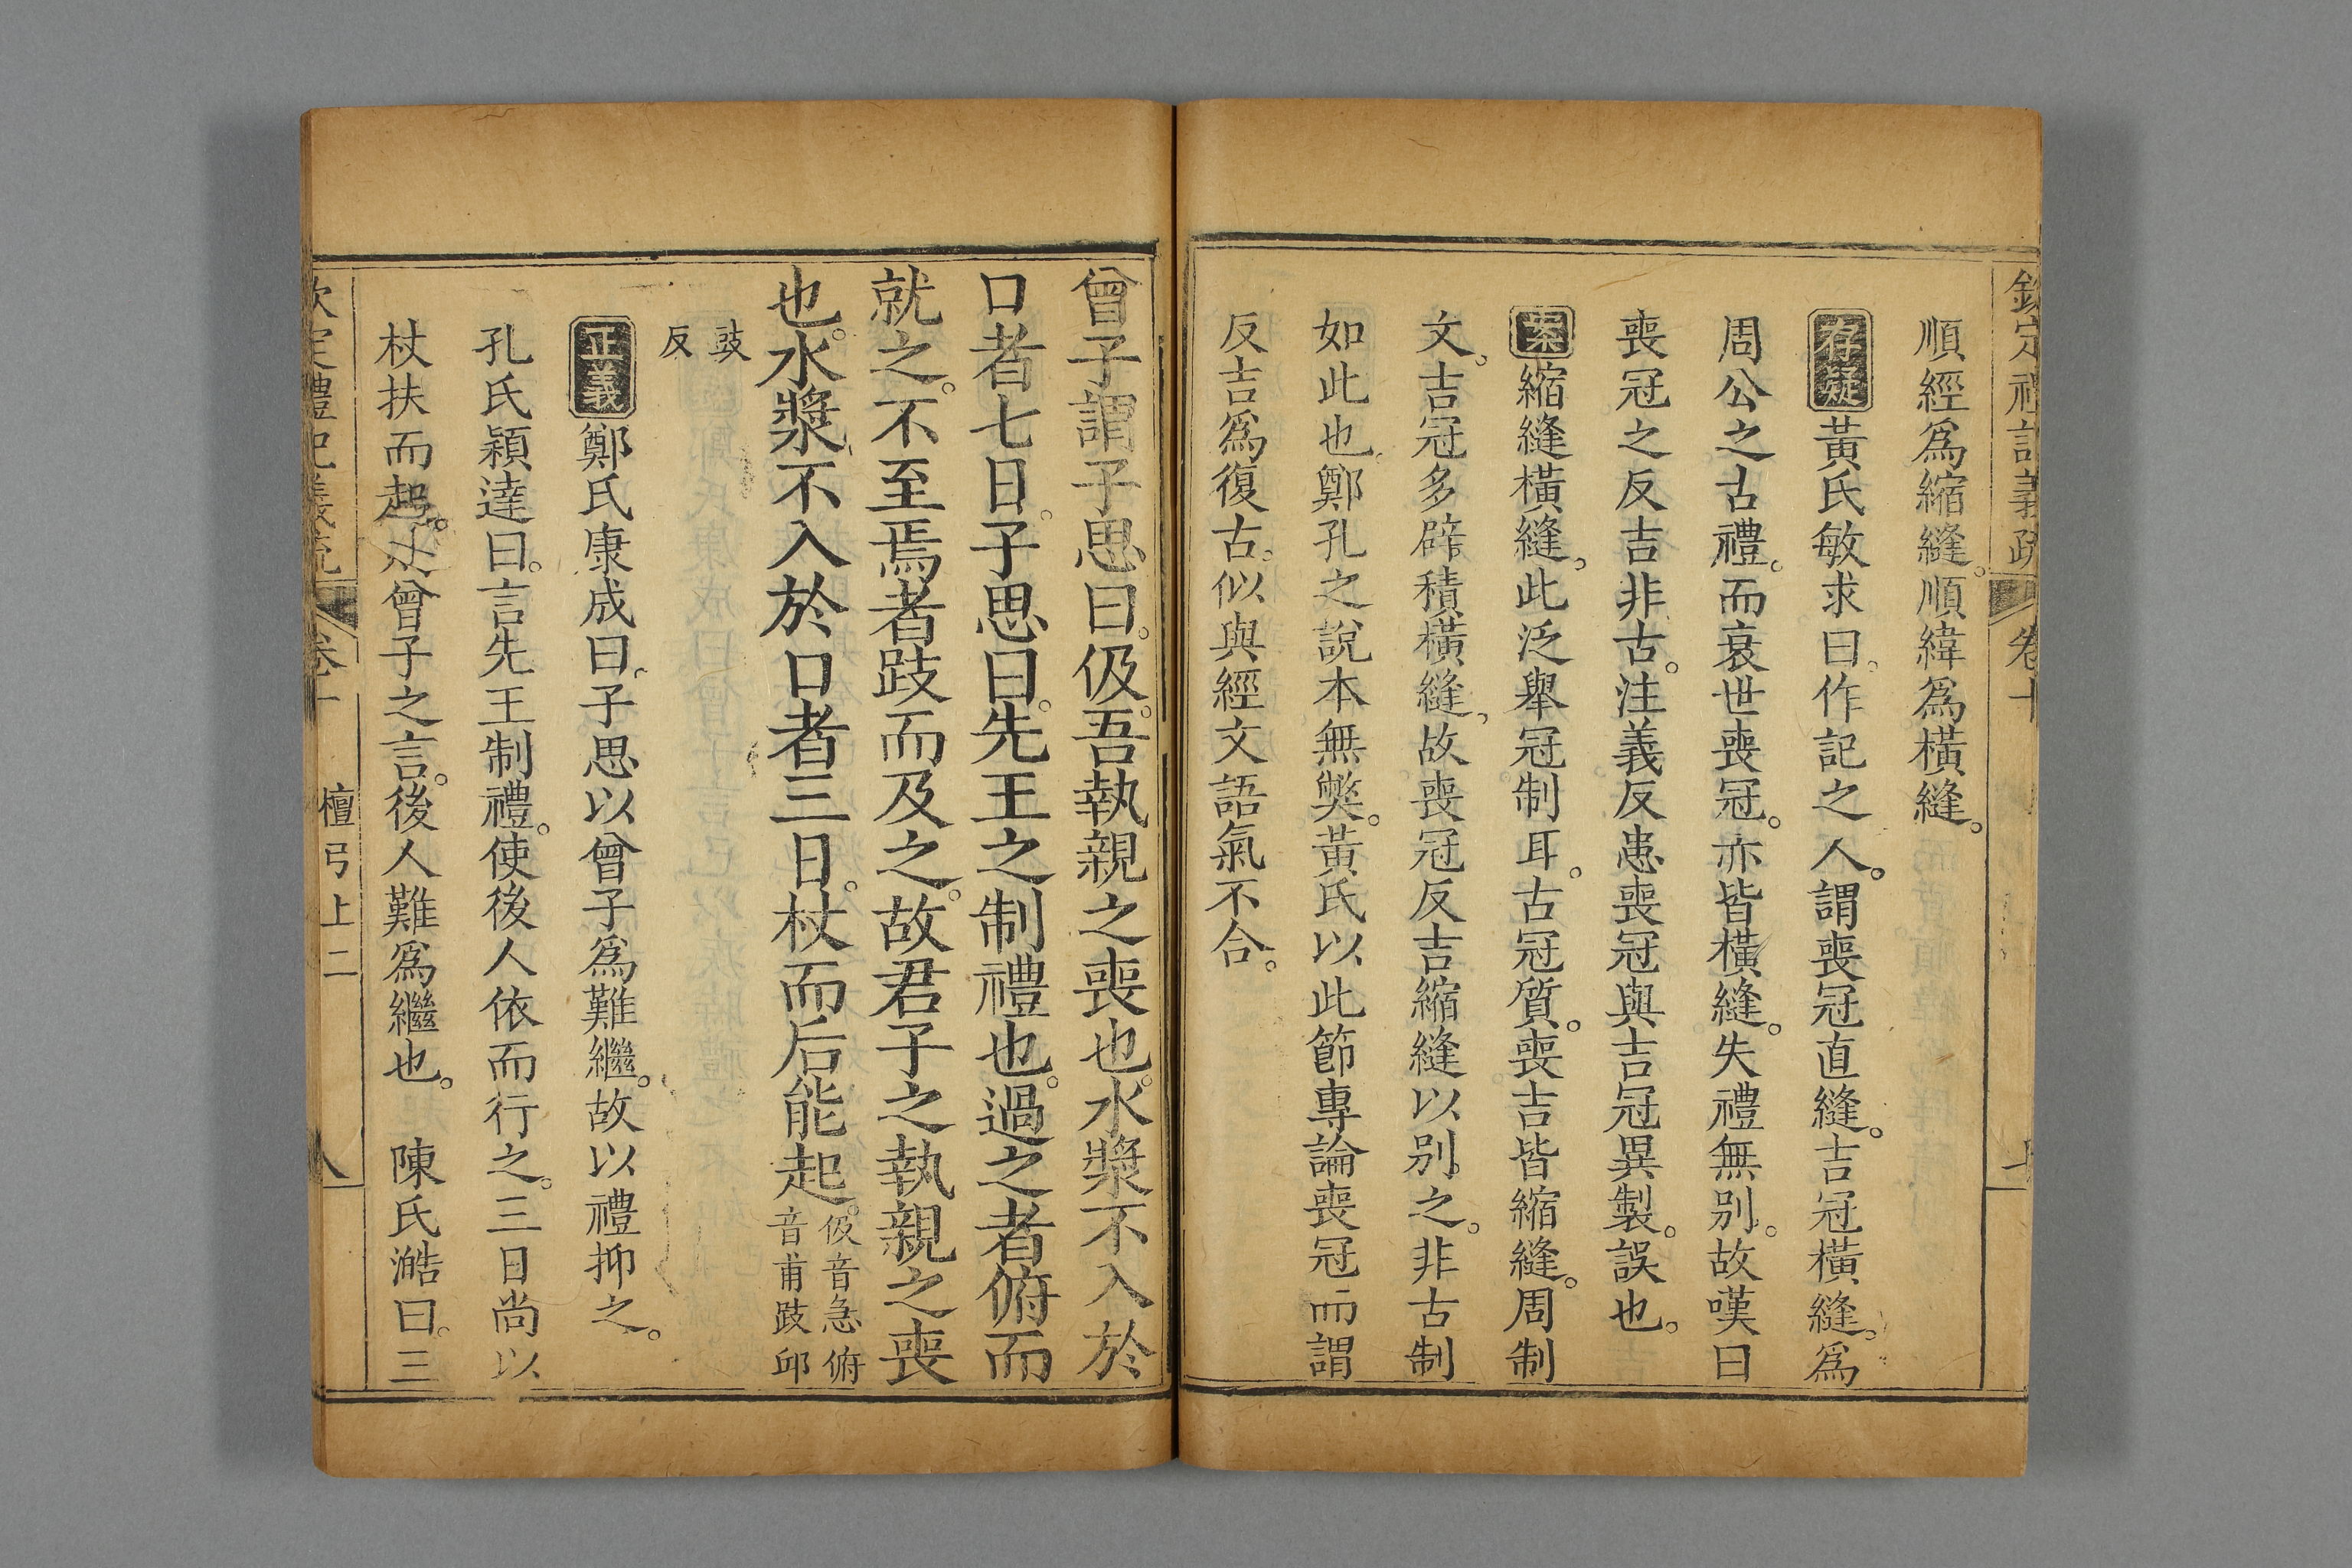 欽定禮記義疏 卷十
順經爲縮縫順緯爲橫縫。
存疑黃氏敏求曰。作記之人。謂喪冠直縫。吉冠橫縫。爲
周公之古禮。而衰世喪冠。亦皆橫縫。失禮無別。故嘆曰
喪冠之反吉非古。注義反患喪冠與吉冠異製。誤也。
案縮縫橫縫。此泛舉冠制耳。古冠質。喪吉皆縮縫。周制
文。吉冠多辟積橫縫。故喪冠反吉縮縫以別之。非古制
如此也。鄭孔之說本無獘。黃氏以此節專論喪冠而謂
反吉爲復古。似與經文語氣不合。
曾子謂子思曰。伋。吾執親之喪也。水漿不入於
口者七日。子思曰。先王之制禮也。過之者俯而
就之。不至焉者跂而及之。故君子之執親之喪
也。水漿不入於口者三日。杖而后能起。伋音急俯
音甫跂邱
豉
反
正義鄭氏康成曰。子思以曾子爲難繼。故以禮抑之。
孔氏穎達曰。言先王制禮。使後人依而行之。三日尚以
杖扶而起。曾子之言。後人難爲繼也。 陳氏澔曰。三
欽定禮記義疏 卷十 檀弓上二 八